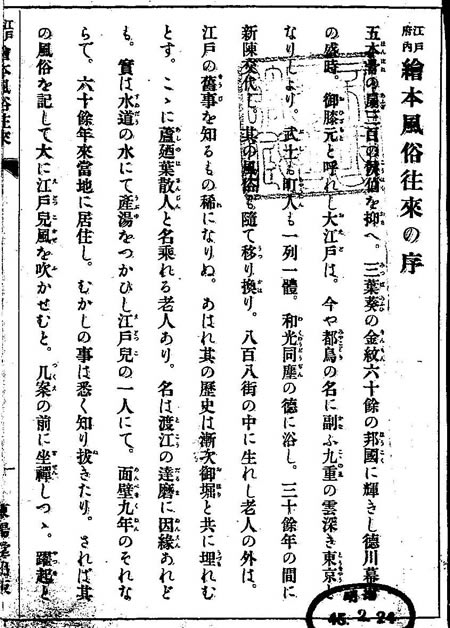 江戸府内 繪本風俗往來の序
五本骨の扇三百の侯伯を抑へ。三葉葵の金紋六十餘の邦國に輝きし德川幕府
の盛時。御膝元と呼れし大江戸は。今や都鳥の名に副ふ九重の雲深き東京と
なりしより。武士も町人も一列一體。和光同塵の德に浴し。三十餘年の間に
新陳交代し。其の風俗も隨て移り換り。八百八街の中に生れし老人の外は。
江戸の舊事を知るもの稀になりぬ。あはれ其の歷史は漸次御堀と共に埋れむ
とす。こゝに蘆廼葉散人と名乘れる老人あり。名は渡江の達磨に因緣あれど
も。實は水道の水にて産湯をつかひし江戸兒の一人にて。面壁九年のそれな
らで。六十餘年來當地に居住し。むかしの事は悉く知り拔きたり。されば其
の風俗を記して大に江戸兒風を吹かせむと。几案の前に坐禪しつゝ。躍起と
江戸 繪本風俗往來
一
明
45.2.24